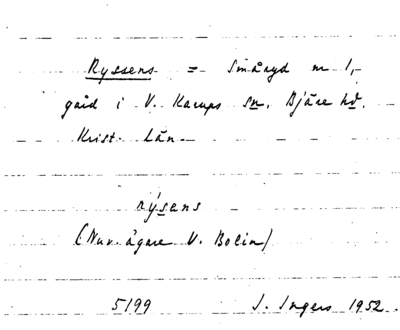 Ryssens = Småryd nr 1,
gård i V. Karups sn, Bjäre hd.
Krist. län.
rýsens
(Nuv. ägare V. Bolin)
5199 I. Ingers 1952.